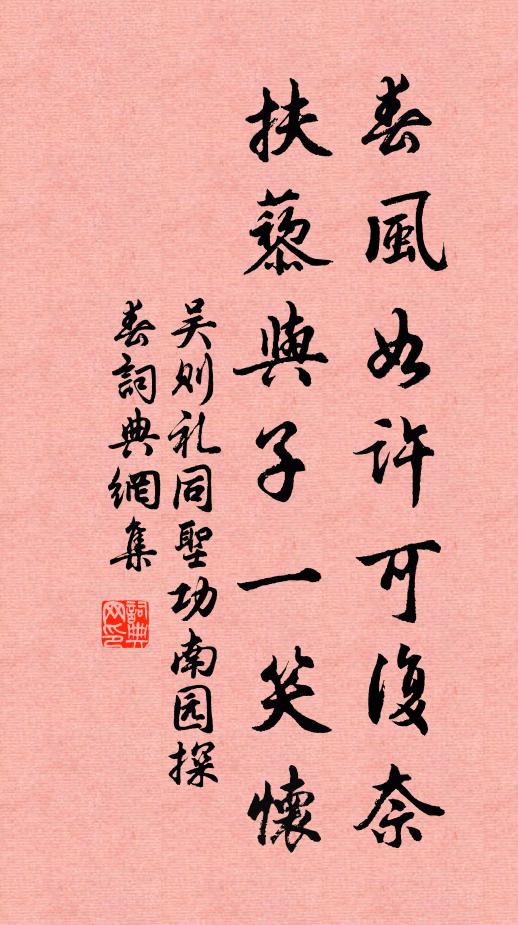 春風如許可復奈
扶藜與子一笑懷
吴则礼同聖功南园探
春詞典網集
詞典
网印